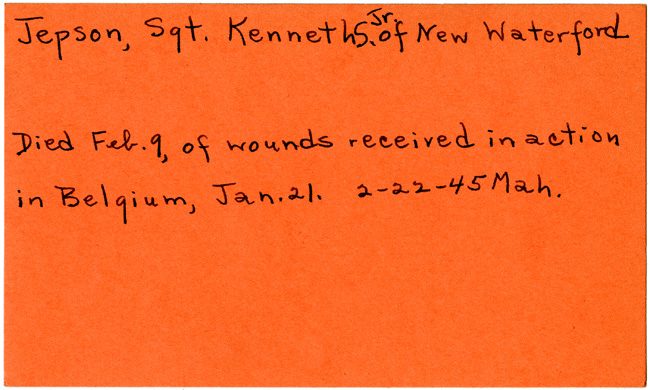 Jepson, Sgt. Kenneth S. Jr. of New Waterford
Died Feb. 9, of wounds received in action
in Belgium, Jan. 21. 2-22-45 Mah.